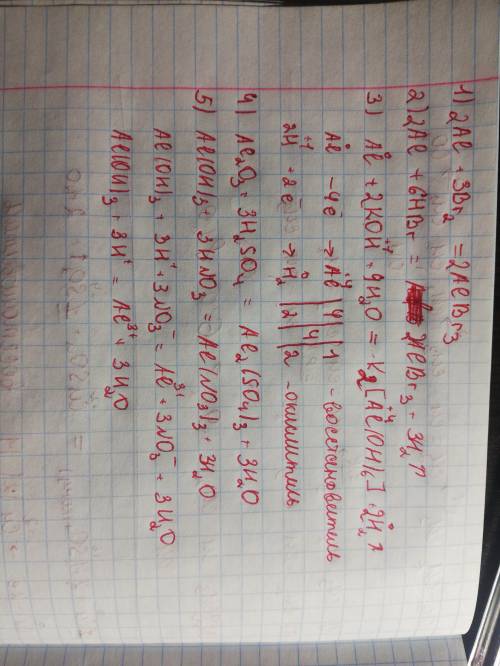 1) 2Al + 3Br₂ = 2AlBr₃
2) 2Al + 6HBr = 2AlBr₃ + 3H₂↑
3) Al⁰ + 2KOH⁺¹ + 4H₂O = K₂[Al⁺⁴(OH)₆] + 2H₂⁰↑
Al⁰ - 4ē → Al⁺⁴ | 4 | 4 | 1 - восстановитель
2H⁺¹ + 2ē → H₂⁰ | 2 | | 2 - окислитель
4) Al₂O₃ + 3H₂SO₄ = Al₂(SO₄)₃ + 3H₂O
5) Al(OH)₃ + 3HNO₃ = Al(NO₃)₃ + 3H₂O
Al(OH)₃ + 3H⁺ + 3NO₃⁻ = Al³⁺ + 3NO₃⁻ + 3H₂O
Al(OH)₃ + 3H⁺ = Al³⁺ + 3H₂O